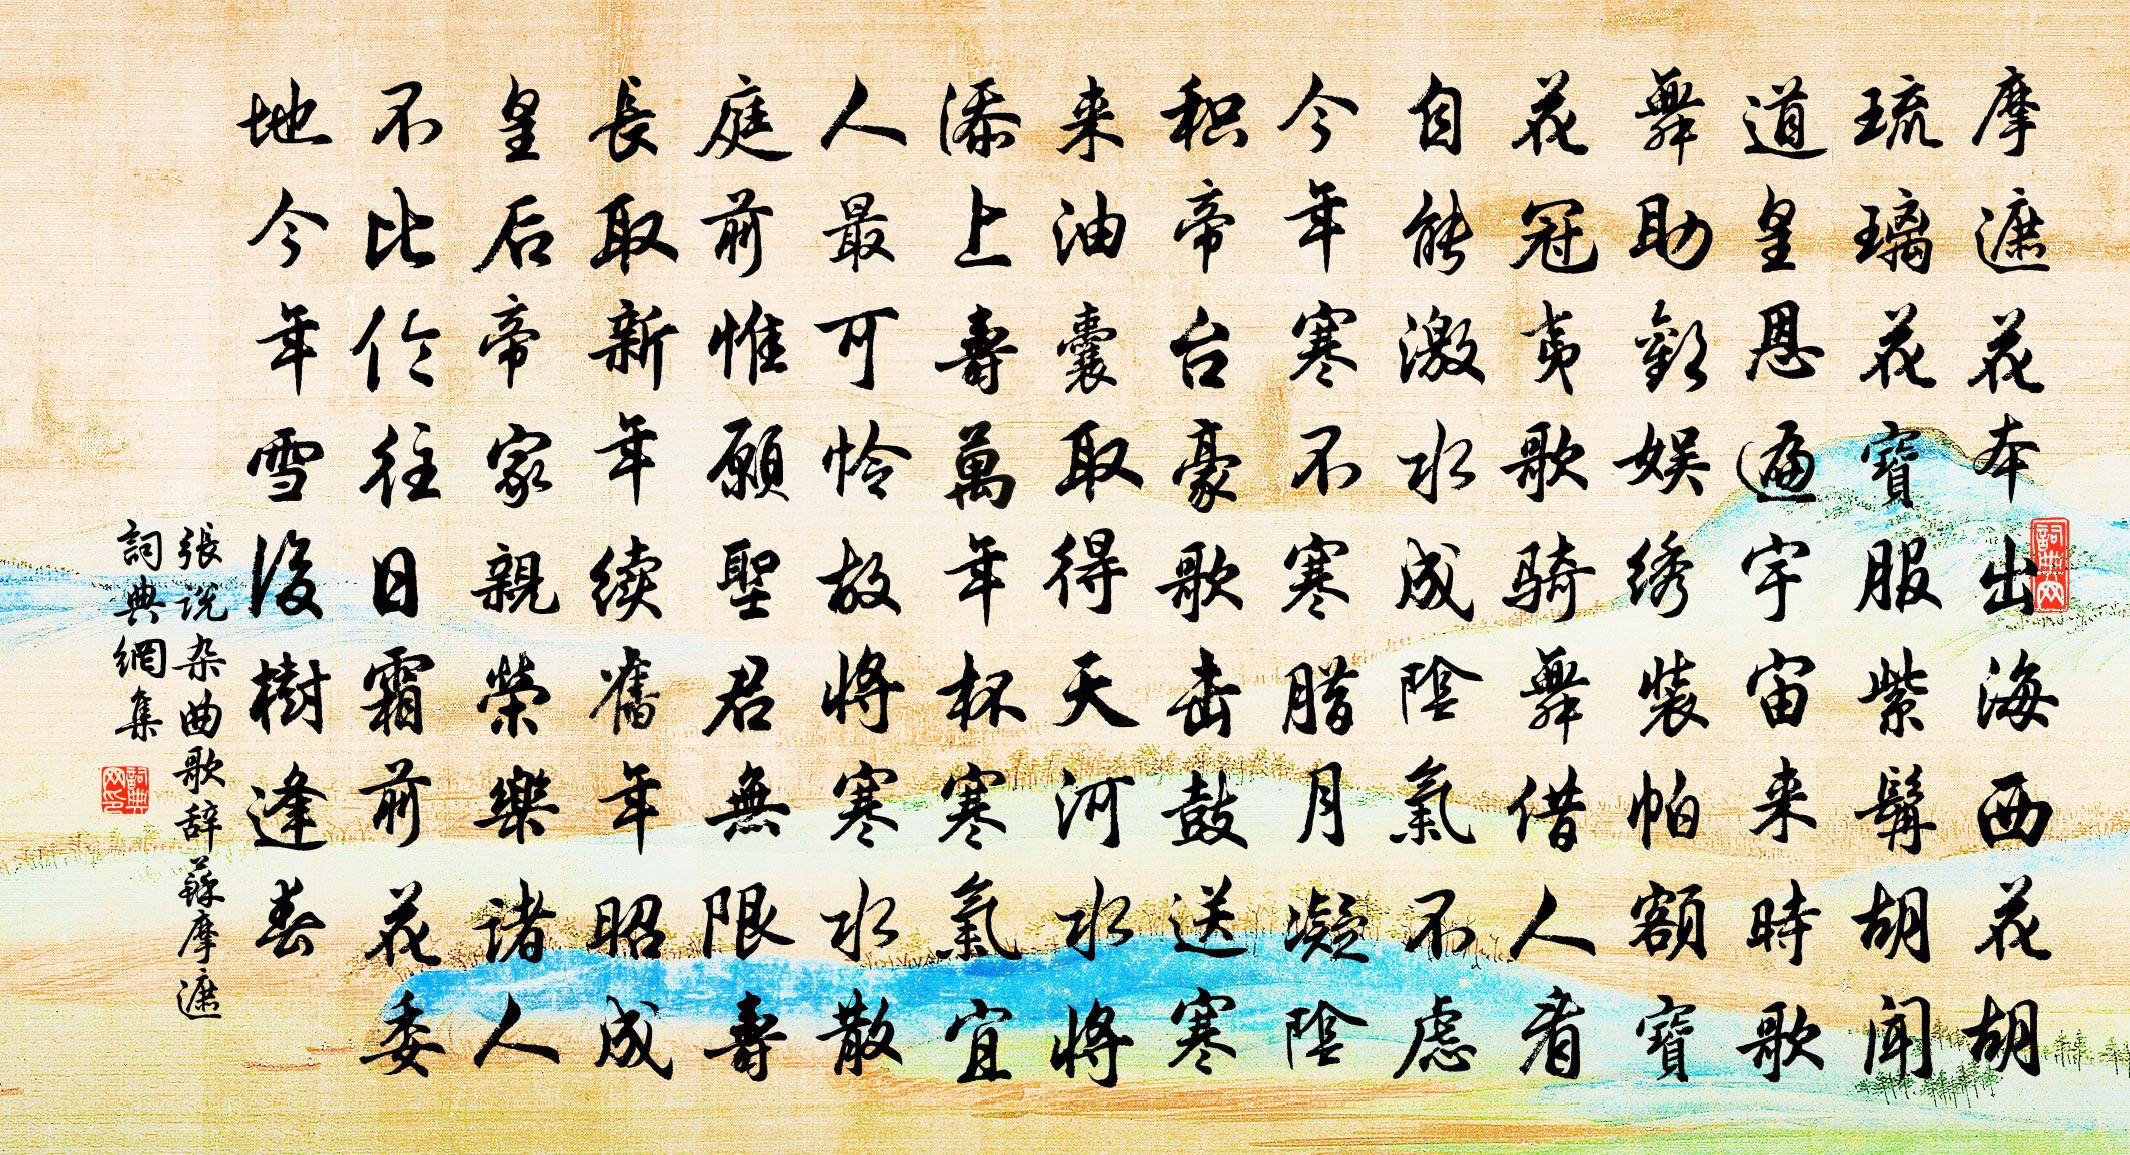 摩遮花本出海西花胡
琉璃花寶服紫髯胡聞
道皇恩遍宇宙来時歌
舞助歡娱绣装帕额寶
花冠夷歌骑舞借人看
自能激水成陰氣不慮
今年寒不寒腊月凝陰
积帝台豪歌击鼓送寒
来油囊取得天河水將
添上壽萬年杯寒氣宜
人最可怜故將寒水散
庭前惟願聖君無限壽
長取新年续舊年昭成
皇后帝家親榮樂诸人
不比伦往日霜前花委
地今年雪後樹逢春
張说杂曲歌辞蘇摩遮
詞典網集
詞典网
詞典网印